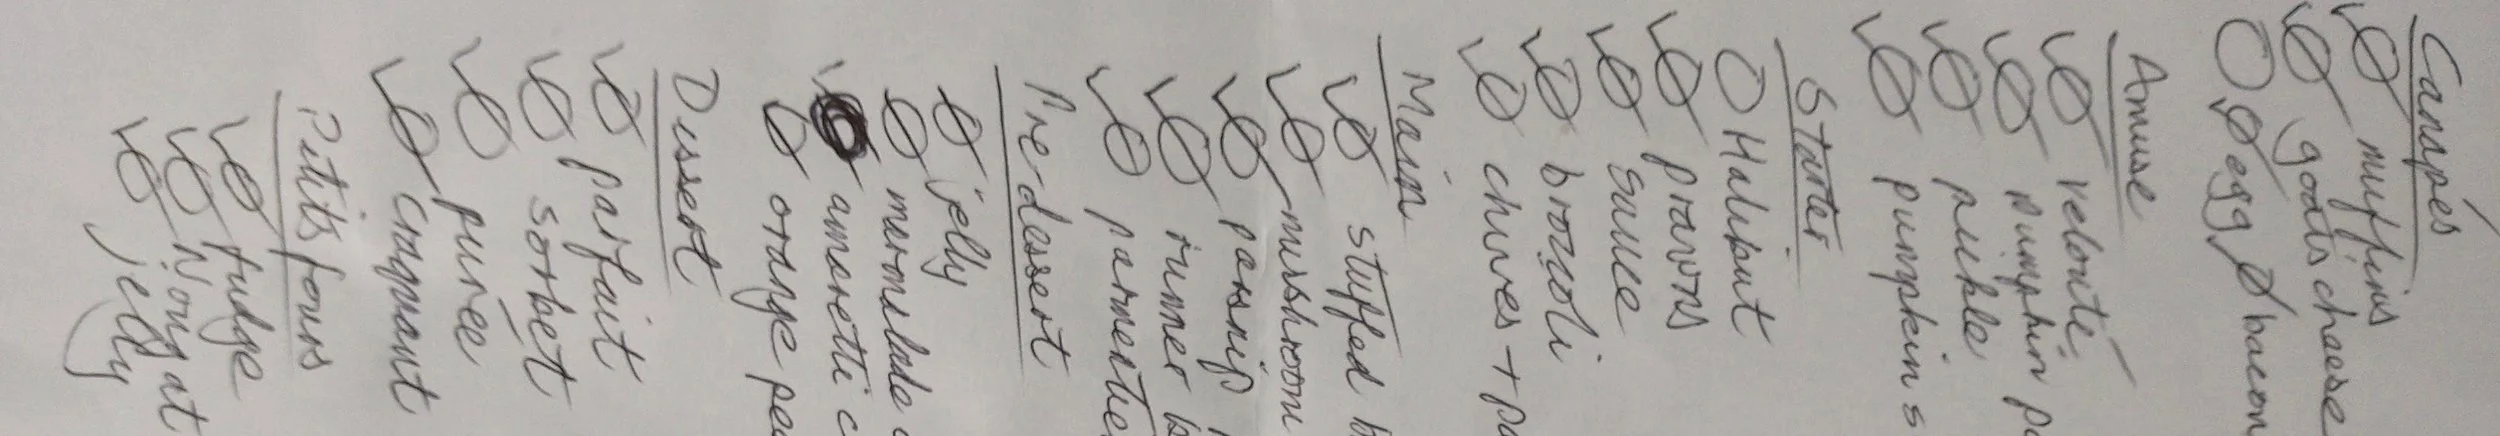 Canapés
muffins
goats cheese
egg bacon
Amuse
velouté
pumpkin p
puree
pumpkin s
Starter
Halibut
prawns
sauce
brocoli
chives + po
Main
stuffed b
mushroom
parsnip
runner b
parmentie
Pre-dessert
jelly
marmalade
amaretti c
orange pee
Dissert
parfait
sorbet
purée
craquant
Petits fours
fudge
Nougat
jelly